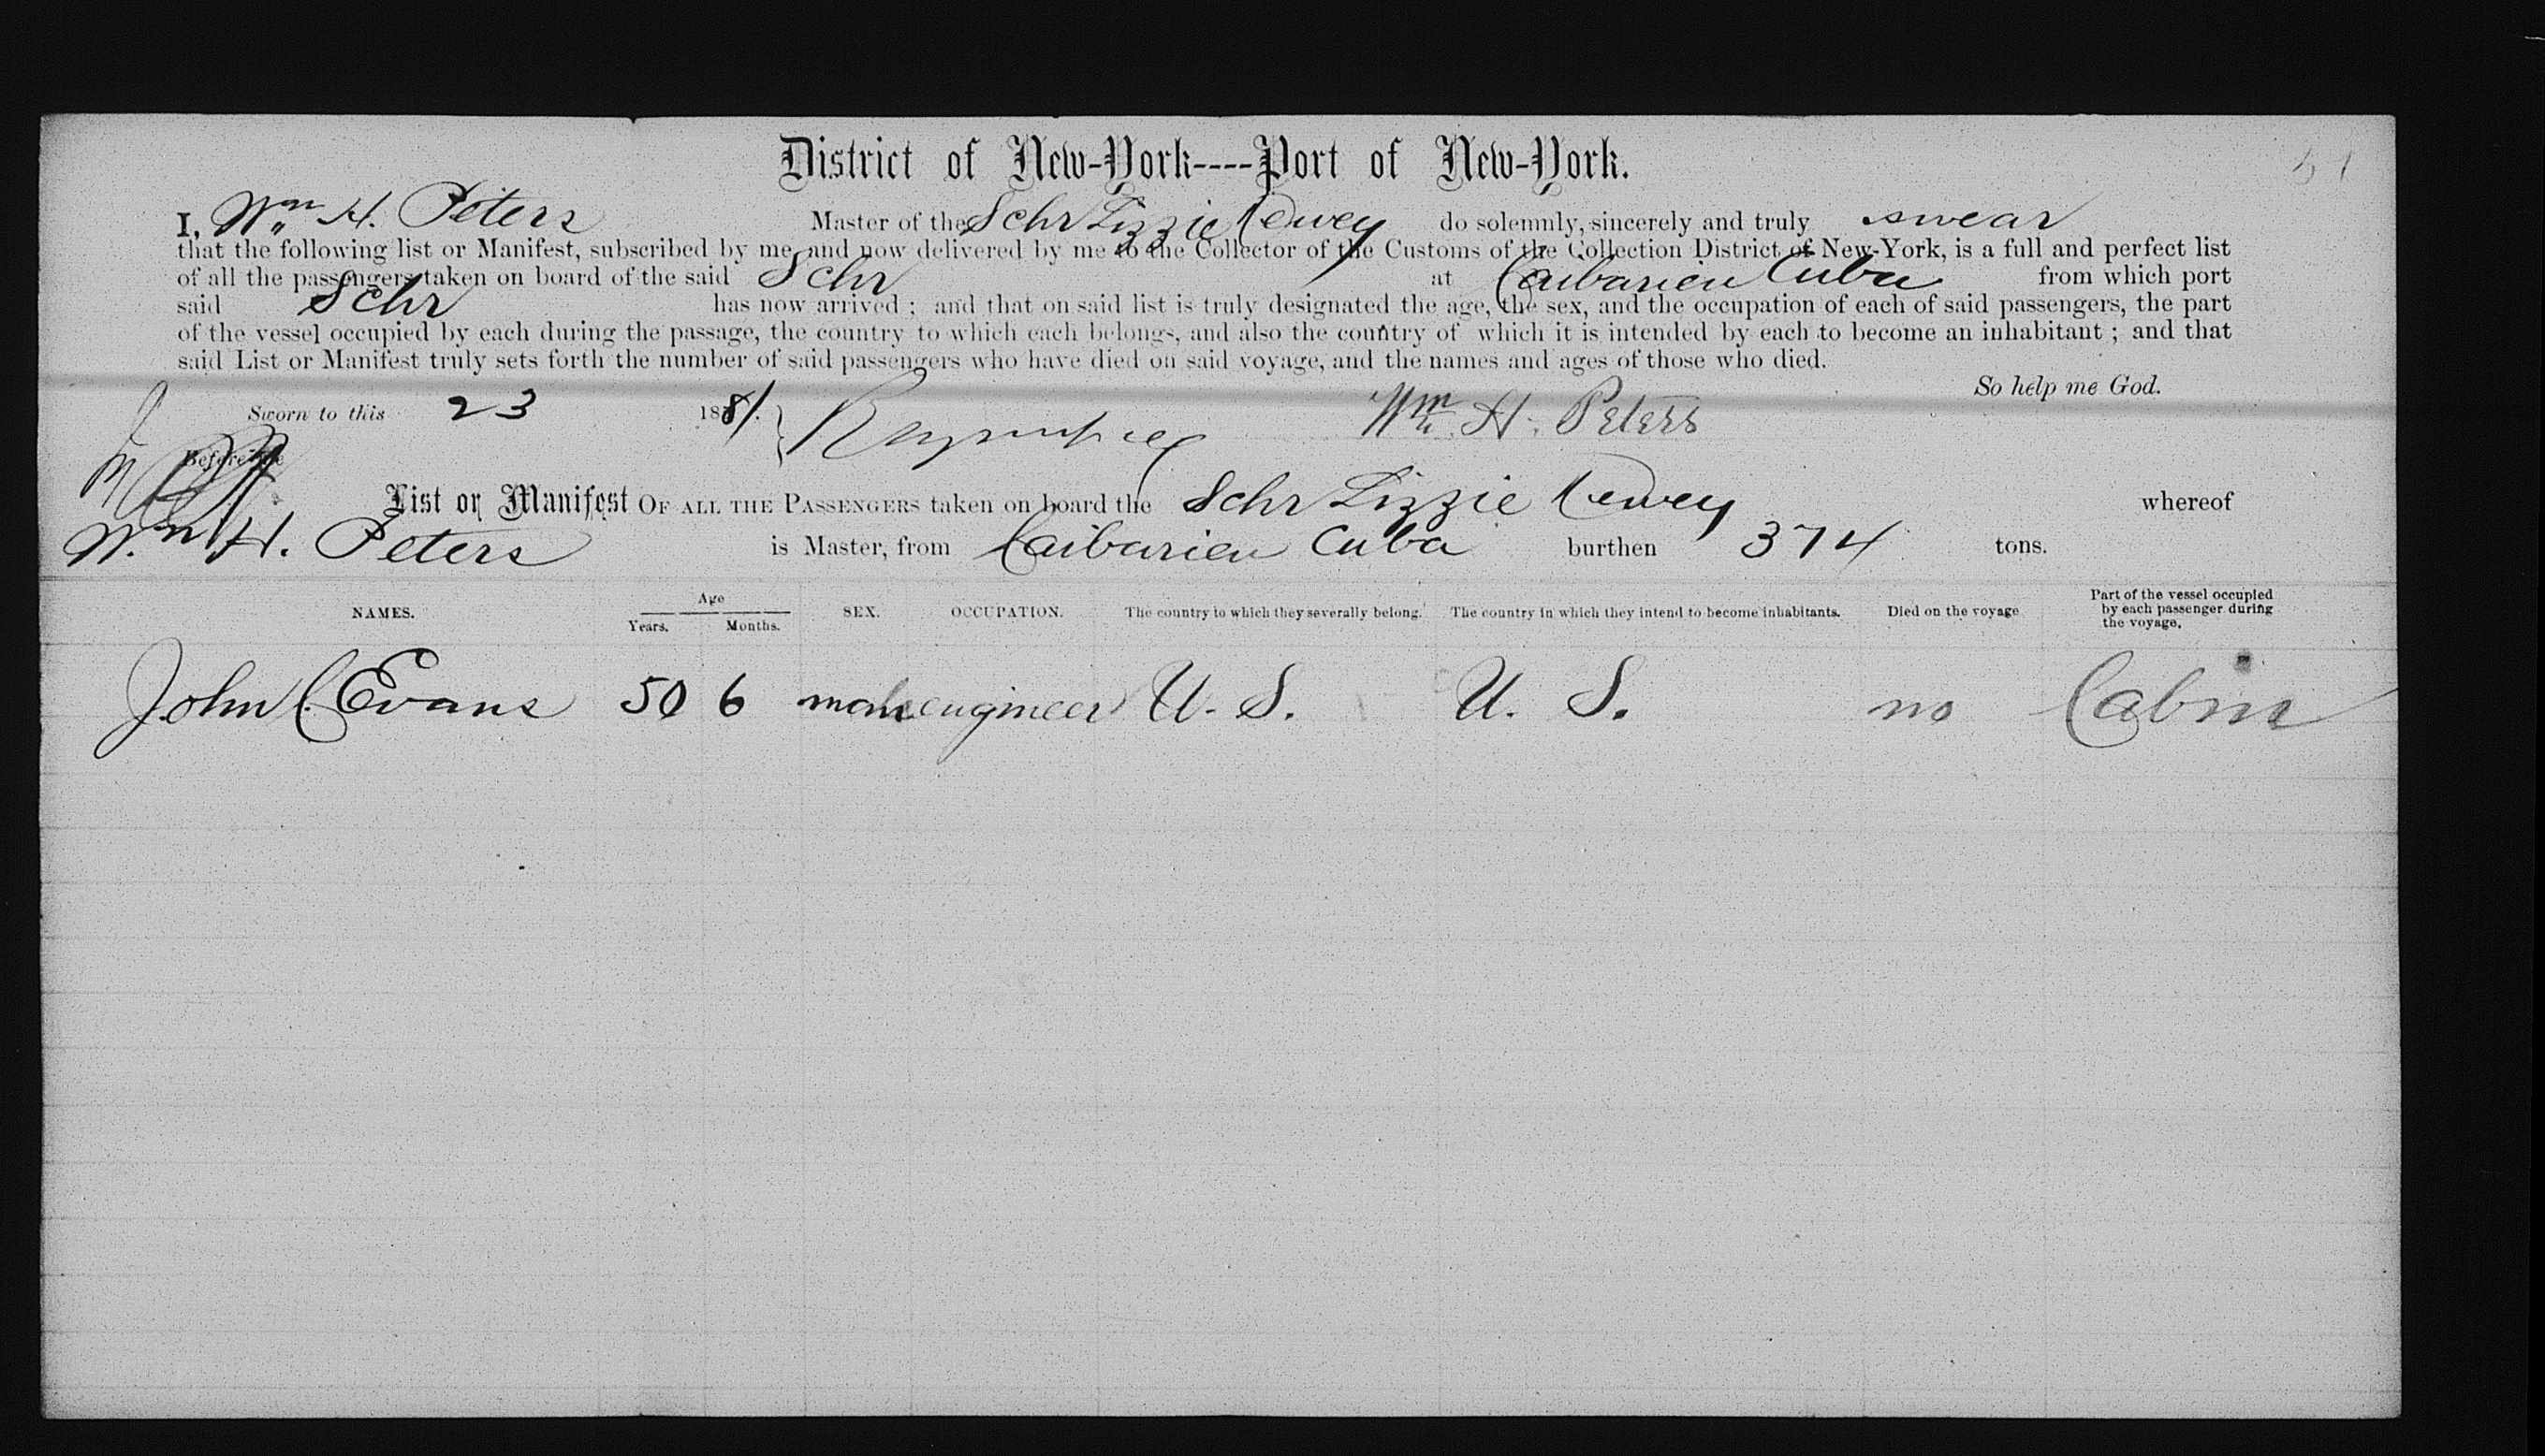 District of New-York----Port of New-York.
I, Wm H. Peters Master of the Schr Lizzie Dewey do solemnly, sincerely and truly swear
that the following list or Manifest, subscribed by me and now delivered by me to the Collector of the Customs of the Collection District of New-York, is a full and perfect list
of all the passengers taken on board of the said Schr at Caibarien Cuba from which port
said Schr has now arrived ; and that on said list is truly designated the age, the sex, and the occupation of each of said passengers, the part
of the vessel occupied by each during the passage, the country to which each belongs, and also the country of which it is intended by each to become an inhabitant ; and that
said List or Manifest truly sets forth the number of said passengers who have died on said voyage, and the names and ages of those who died.
So help me God.
Sworn to this 23 1881. } Wm H. Peters
Before me
List or Manifest OF ALL THE PASSENGERS taken on board the Schr Lizzie Dewey whereof
Wm H. Peters is Master, from Caibarien Cuba burthen 374 tons.
NAMES. Age Years. Months. SEX. OCCUPATION. The country to which they severally belong. The country in which they intend to become inhabitants. Died on the voyage Part of the vessel occupied by each passenger during the voyage.
John C. Evans 50 6 male engineer U. S. U. S. no Cabin